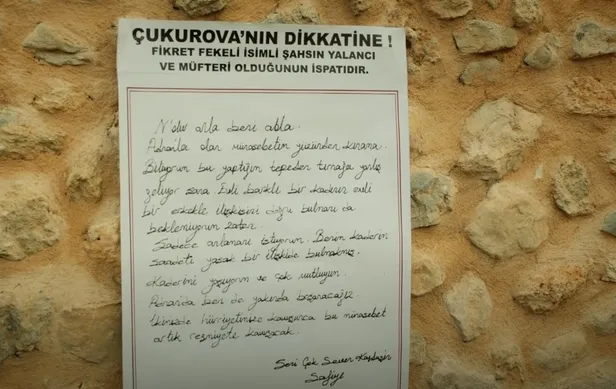 ÇUKUROVA'NIN DİKKATİNE !
FİKRET FEKELİ İSİMLİ ŞAHSIN YALANCI
VE MÜFTERİ OLDUĞUNUN İSPATIDIR.
N'olur anla beni abla.
Adnan'la olan münasebetim yüzünden kınama.
Biliyorum bu yaptığım tepeden tırnağa yanlış
geliyor sana. Evli barklı bir kadının evli
bir erkekle ilişkisini doğru bulmanı da
beklemiyorum zaten.
Sadece anlamanı istiyorum. Benim kaderim
saadeti yasak bir ilişkide bulmakmış.
Kaderimi yaşıyorum ve çok mutluyum.
Adnan'da ben de yakında boşanacağız
İkimizde hürriyetimize kavuşunca bu münasebet
artık resmiyete kavuşacak.
Seni Çok Seven Kardeşin
Safiye